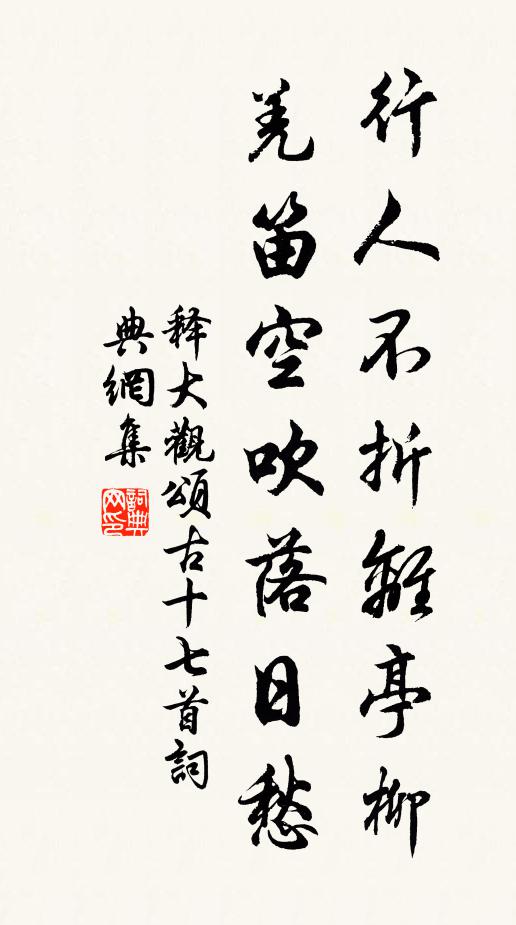 行人不折離亭柳
羌笛空吹落日愁
释大觀頌古十七首詞
典網集
詞典网印